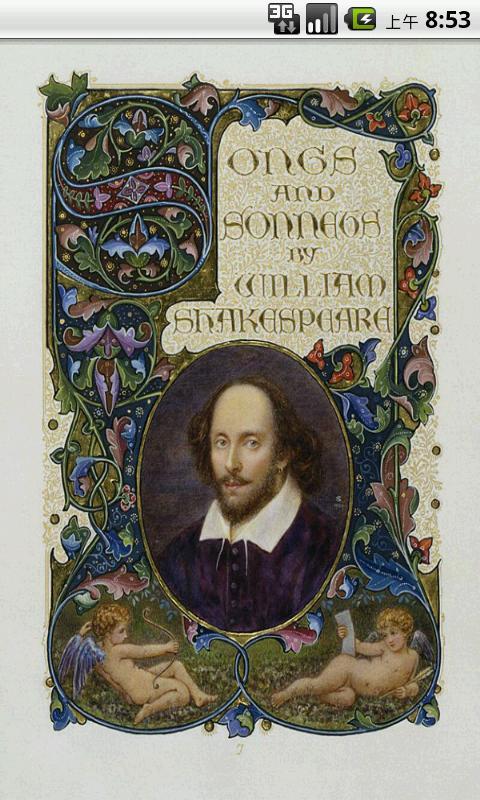 3G
上午 8:53
SONGS
AND
SONNETS
BY
WILLIAM
SHAKESPEARE